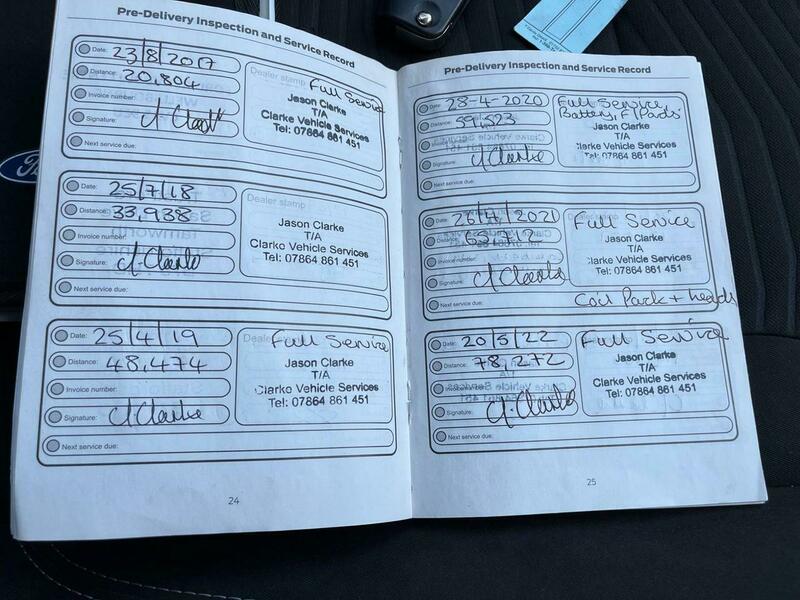 Pre-Delivery Inspection and Service Record
Date: 23/8/2017
Distance: 20,804
Invoice number:
Signature: J Clarke
Next service due:
Dealer stamp
Full Service
Jason Clarke
T/A
Clarke Vehicle Services
Tel: 07864 861 451
Date: 25/7/18
Distance: 33,938
Invoice number:
Signature: J. Clarke
Next service due:
Dealer stamp
Jason Clarke
T/A
Clarke Vehicle Services
Tel: 07864 861 451
Date: 25/4/19
Distance: 48,474
Invoice number:
Signature: J Clarke
Next service due:
Full Service
Jason Clarke
T/A
Clarke Vehicle Services
Tel: 07864 861 451
24
Pre-Delivery Inspection and Service Record
Date: 28-4-2020
Distance: 59,523
Signature: J Clarke
Next service due:
Full Service,
Battery, F/Pads
Jason Clarke
T/A
Clarke Vehicle Services
Tel: 07864 861 451
Date: 26/4/2021
Distance:
Invoice number:
Signature: J Clarke
Next service due:
Full Service
Jason Clarke
T/A
Clarke Vehicle Services
Tel: 07864 861 451
Coil Pack + leads
Date: 20/5/22
Distance: 78,272
Signature: J. Clarke
Next service due:
Full Service
Jason Clarke
T/A
Clarke Vehicle Services
Tel: 07864 861 451
25